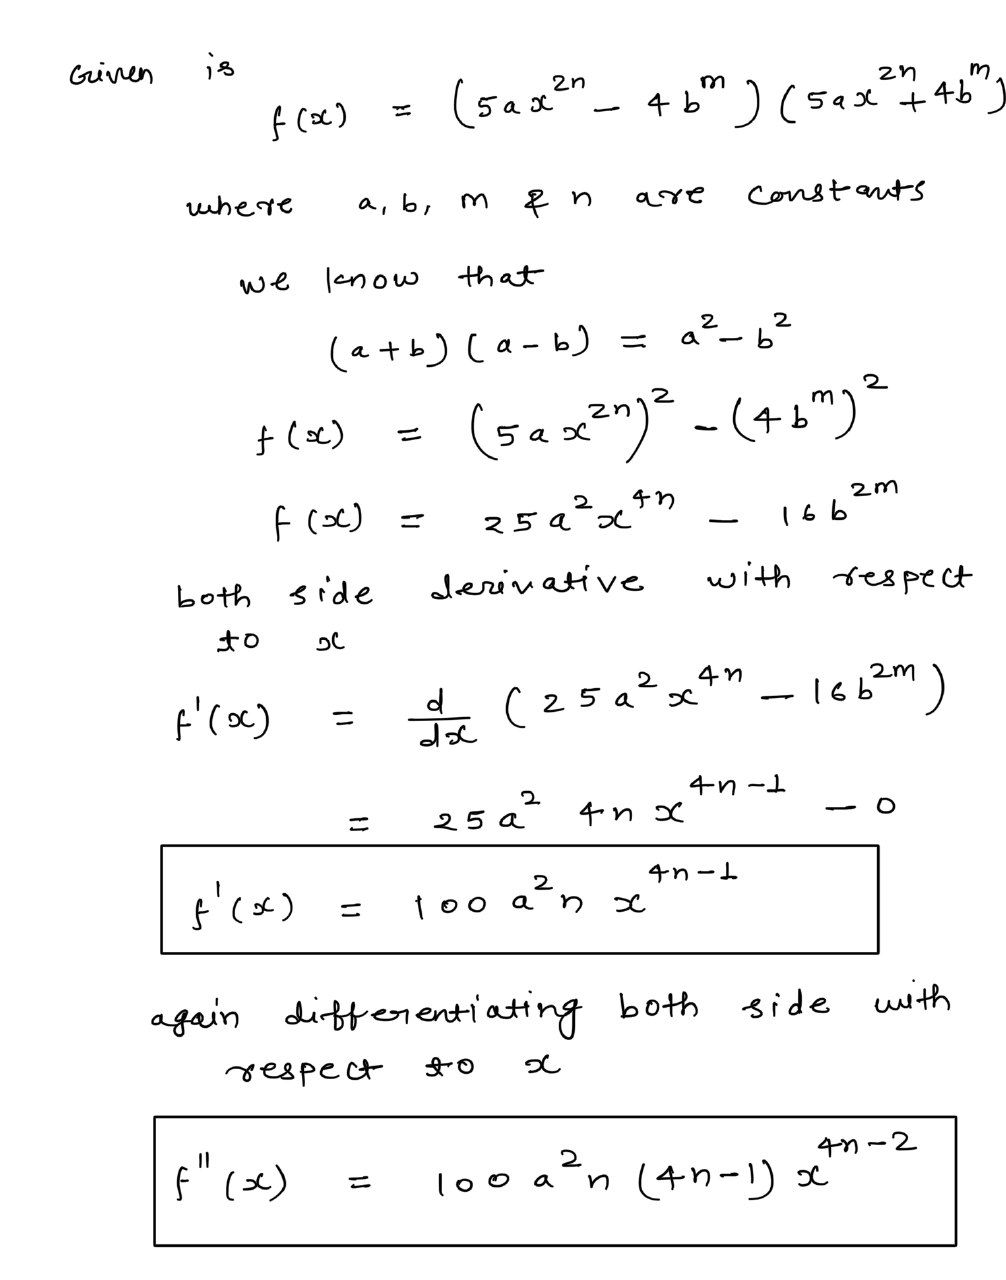 Given is
f(x) = (5ax²ⁿ − 4bᵐ)(5ax²ⁿ + 4bᵐ)
where a, b, m & n are constants
we know that
(a+b)(a-b) = a² − b²
f(x) = (5ax²ⁿ)² − (4bᵐ)²
f(x) = 25a²x⁴ⁿ − 16b²ᵐ
both side derivative with respect
to x
f'(x) = d/dx (25a²x⁴ⁿ − 16b²ᵐ)
= 25a² 4n x⁴ⁿ⁻¹ − 0
f'(x) = 100 a²n x⁴ⁿ⁻¹
again differentiating both side with
respect to x
f''(x) = 100 a²n (4n-1) x⁴ⁿ⁻²